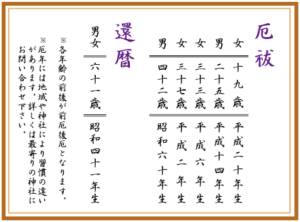 厄祓
女 十九歳 平成二十年生
男 二十五歳 平成十四年生
女 三十三歳 平成六年生
女 三十七歳 平成二年生
男 四十二歳 昭和六十年生
還暦
男女 六十一歳 昭和四十一年生
※各年齢の前後が前厄後厄となります。
※厄年には地域や神社により習慣の違い
があります。詳しくは最寄りの神社に
お問い合わせ下さい。